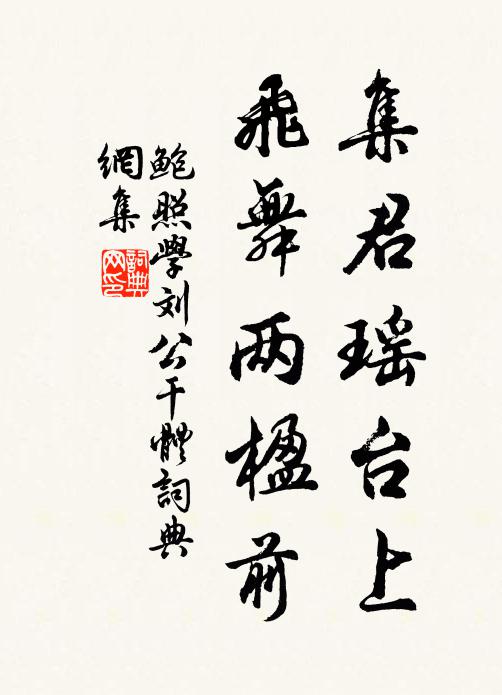 集君瑶台上
飛舞两楹前
鲍照學刘公干體詞典
網集
詞典
网印